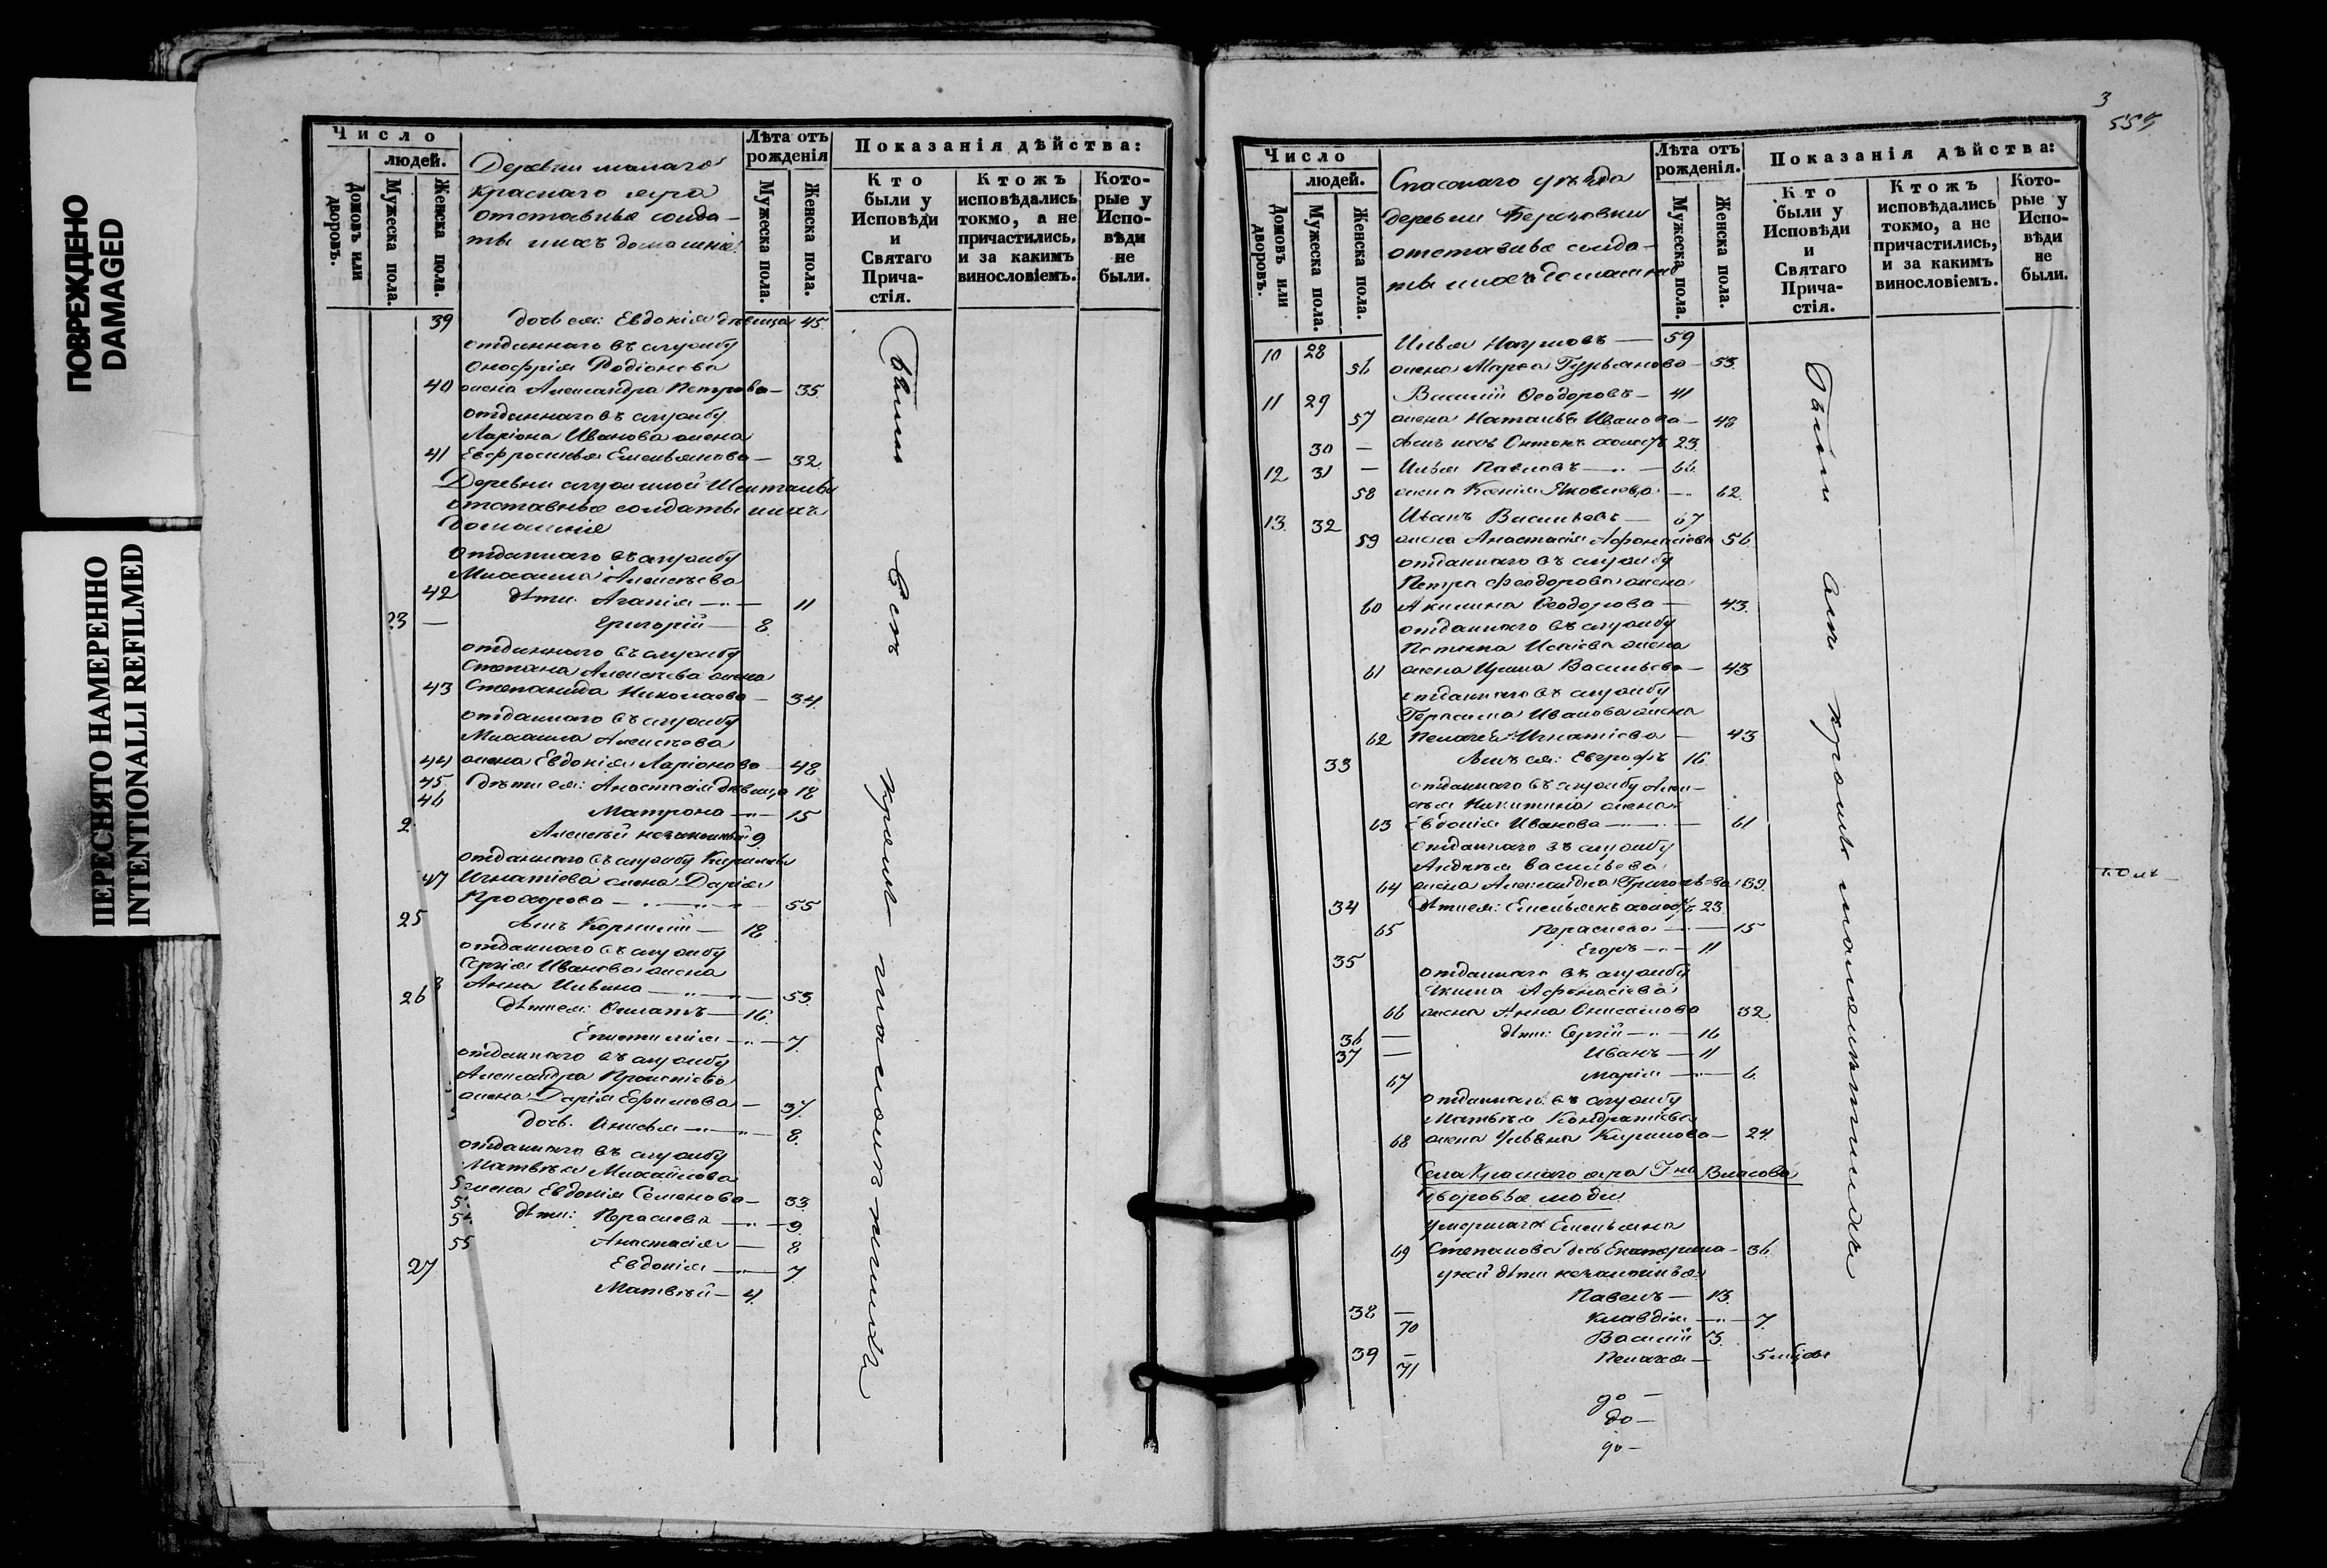 ПОВРЕЖДЕНО
DAMAGED
ПЕРЕСНЯТО НАМЕРЕННО
INTENTIONALLI REFILMED
Число
людей.
Домовъ или дворовъ.
Мужеска пола.
Женска пола.
Деревни малаго
краснаго яра
отставные солда-
ты и ихъ домашніе
Лѣта отъ рожденія
Мужеска пола.
Женска пола.
Показанія дѣйства:
Кто были у Исповѣди и Святаго Прича-стія.
Ктожъ исповѣдались токмо, а не причастились, и за какимъ винословіемъ.
Кото-рые у Испо-вѣди не были.
39 дочь ея: Евдокія дѣвица 45.
отданнаго въ службу
Онофрія Родіонова
40 жена Александра Петрова — 35.
отданнаго въ службу
Ларіона Иванова жена
41 Евфросинья Емельянова — 32.
Деревни
отставные солдаты и ихъ
домашніе
отданнаго въ службу
Михаила Алексѣева
42 дѣти: Агапія — 11
23 — Григорій — 8.
отданнаго въ службу
Степана Алексѣева жена
43 Степанида Николаева — 34.
отданнаго въ службу
Михаила Алексѣева
44 жена Евдокія Ларіонова — 48
45. дѣти ея: Анастасія дѣвица 18
46 Матрона — 15
2 Алексѣй незаконный 9.
отданнаго въ службу Кирилы
47 Игнатіева жена Дарія
Прохорова — 55
25 сынъ Корнилій — 18
отданнаго въ службу
Сергія Иванова жена
Анна Ильина — 53.
26 дѣти ея: Филатъ — 16.
Епистимія — 7.
отданнаго въ службу
Александра
жена Дарія Ефимова — 37.
дочь. Анисья — 8.
отданнаго въ службу
Матвѣя Михайлова
жена Евдокія Семенова — 33.
дѣти: Параскева — 9.
55 Анастасія — 8
Евдокія — 7
27 Матвѣй — 4.
Были всѣ кромѣ малолѣтнихъ
3
555
Число
людей.
Домовъ или дворовъ.
Мужеска пола.
Женска пола.
Спасскаго уѣзда
деревни
отставные солда-
ты и ихъ домашніе
Лѣта отъ рожденія.
Мужеска пола.
Женска пола.
Показанія дѣйства:
Кто были у Исповѣди и Святаго Прича-стія.
Ктожъ исповѣдались токмо, а не причастились, и за какимъ винословіемъ.
Кото-рые у Испо-вѣди не были.
10 28 Илья Наумовъ — 59
56 жена Марфа Гурьянова — 53.
11 29 Василій Ѳеодоровъ — 41
57 жена Наталья Иванова — 48
30 — сынъ ихъ Антонъ холостъ 23.
12 31 — Илья Павловъ — 66.
58 жена Ксенія Яковлева — 62.
13. 32 Иванъ Васильевъ — 67
59 жена Анастасія Афонасіева 56.
отданнаго въ службу
Петра Феодорова жена
60 Акилина Ѳеодорова — 43.
отданнаго въ службу
жена
61 жена Ирина Васильева — 43
отданнаго въ службу
Герасима Иванова жена
62 Пелагея Игнатіева — 43
33 сынъ ея: Евграфъ 16.
отданнаго въ службу Алек-
сѣя Никитина жена
63 Евдокія Иванова — 61
отданнаго въ службу
Андрея Васильева
64 жена Александра Григорьева
34 дѣти ея: Емельянъ холостъ 23.
65 Параскева — 15
35 Егоръ — 11
отданнаго въ службу
Якима Афонасіева
66 жена Анна Онисимова 32.
36 — дѣти: Сергій — 16
37 — Иванъ — 11
67 Марія — 6.
отданнаго въ службу
Матвѣя Кондратіева
68 жена Ульяна Кирилова — 24.
Села Краснаго яра Гна Власова
дворовые люди
умершаго Емельяна
69 Степанова дочь Екатерина — 36.
у ней дѣти незаконныя
38 — Павелъ — 13.
70 Клавдія — 7.
39 — Василій 5.
71 Пелагея — 5 мѣсяц
до —
до —
до —
Были всѣ кромѣ малолѣтнихъ